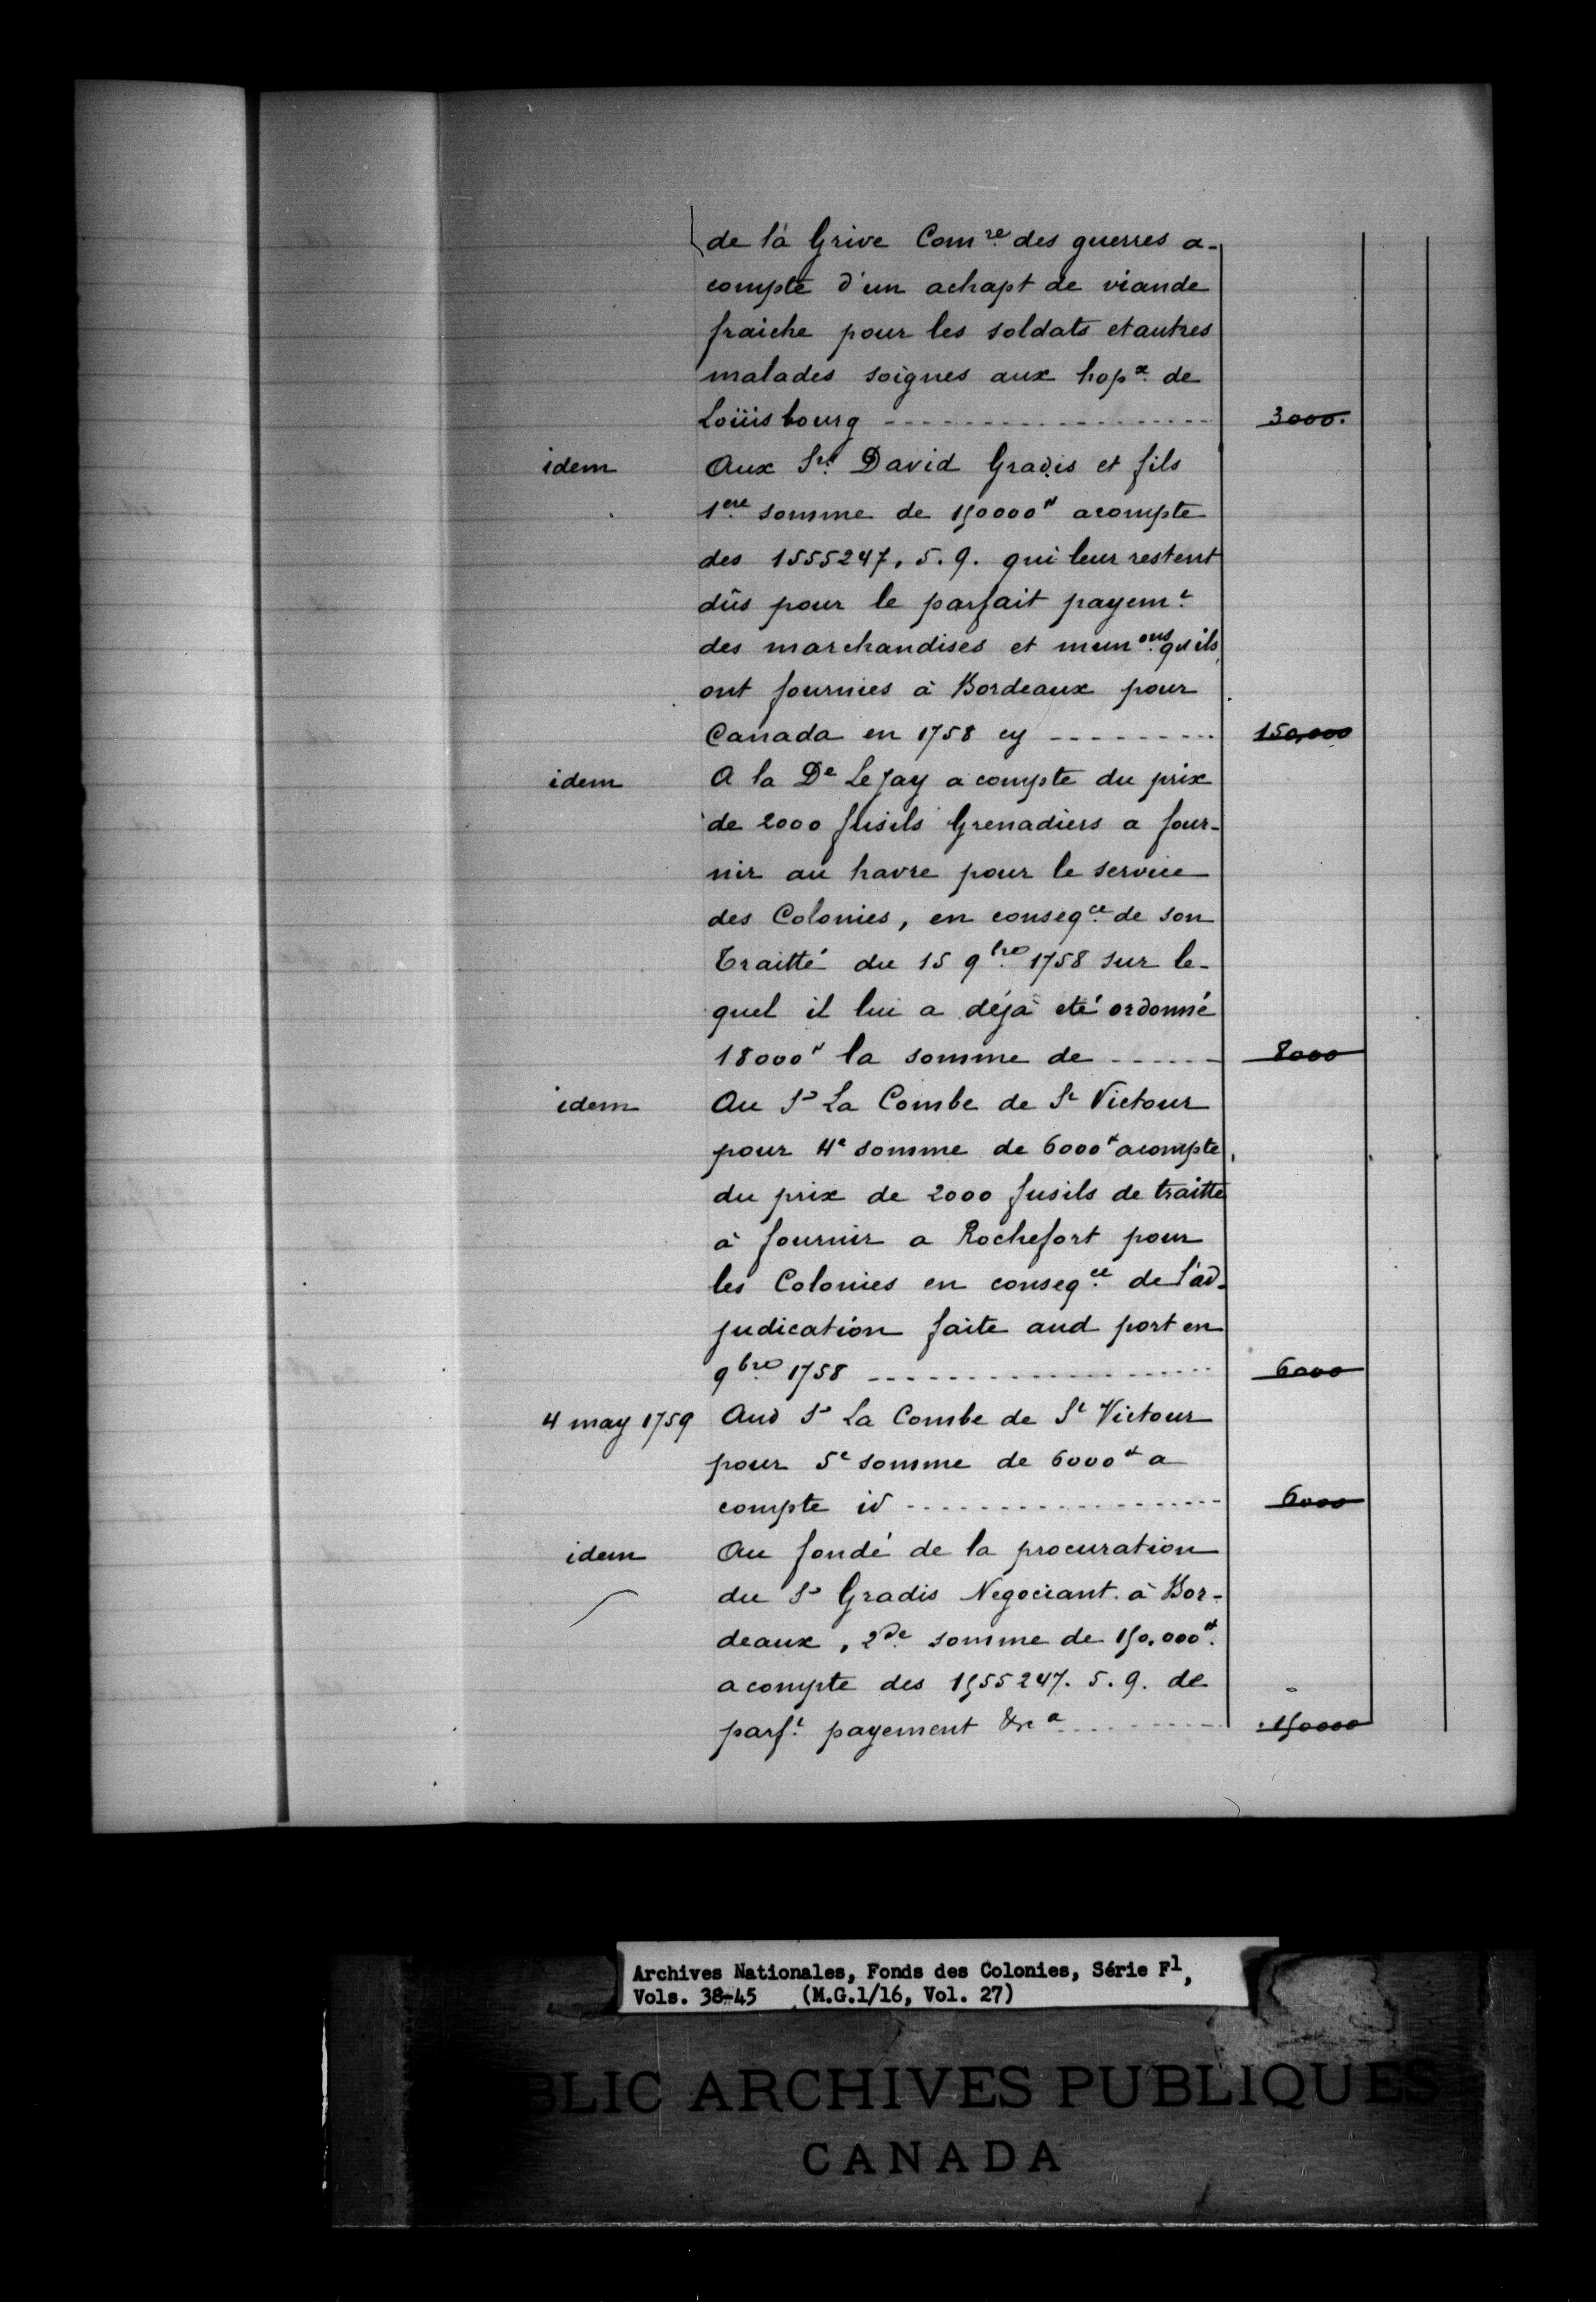 de la Grive Com.re des guerres a-
compte d'un achapt de viande
fraiche pour les soldats et autres
malades soignes aux hop.x de
Loüisbourg ---------- 3000.
idem Aux S.rs David Gradis et fils
1.ere somme de 150000# acompte
des 1555247. 5. 9. qui leur restent
dûs pour le parfait payem.t
des marchandises et mun.ons qu'ils
ont fournies à Bordeaux pour
Canada en 1758 cy -------- 150,000
idem A la De Le Jay a compte du prix
de 2000 fusils Grenadiers a four-
nir au havre pour le service
des Colonies, en conseq.ce de son
Traitté du 15 9.bre 1758 sur le-
quel il lui a déjà eté ordonné
18000# la somme de ------ 8000
idem Au Sr La Combe de St Victour
pour 4e somme de 6000# acompte
du prix de 2000 fusils de traitte
à fournir a Rochefort pour
les Colonies en conseq.ce de l'ad-
judication faite aud port en
9.bre 1758 ---------- 6000
4 may 1759 Aud Sr La Combe de St Victour
pour 5e somme de 6000# a
compte id ---------- 6000
idem Au fondé de la procuration
du Sr Gradis Negociant à Bor-
deaux, 2.de somme de 150.000#.
acompte des 1555247. 5. 9. de
parf.t payement &c a -------- 150000
Archives Nationales, Fonds des Colonies, Série F1,
Vols. 38-45 (M.G.1/16, Vol. 27)
BLIC ARCHIVES PUBLIQUES
CANADA